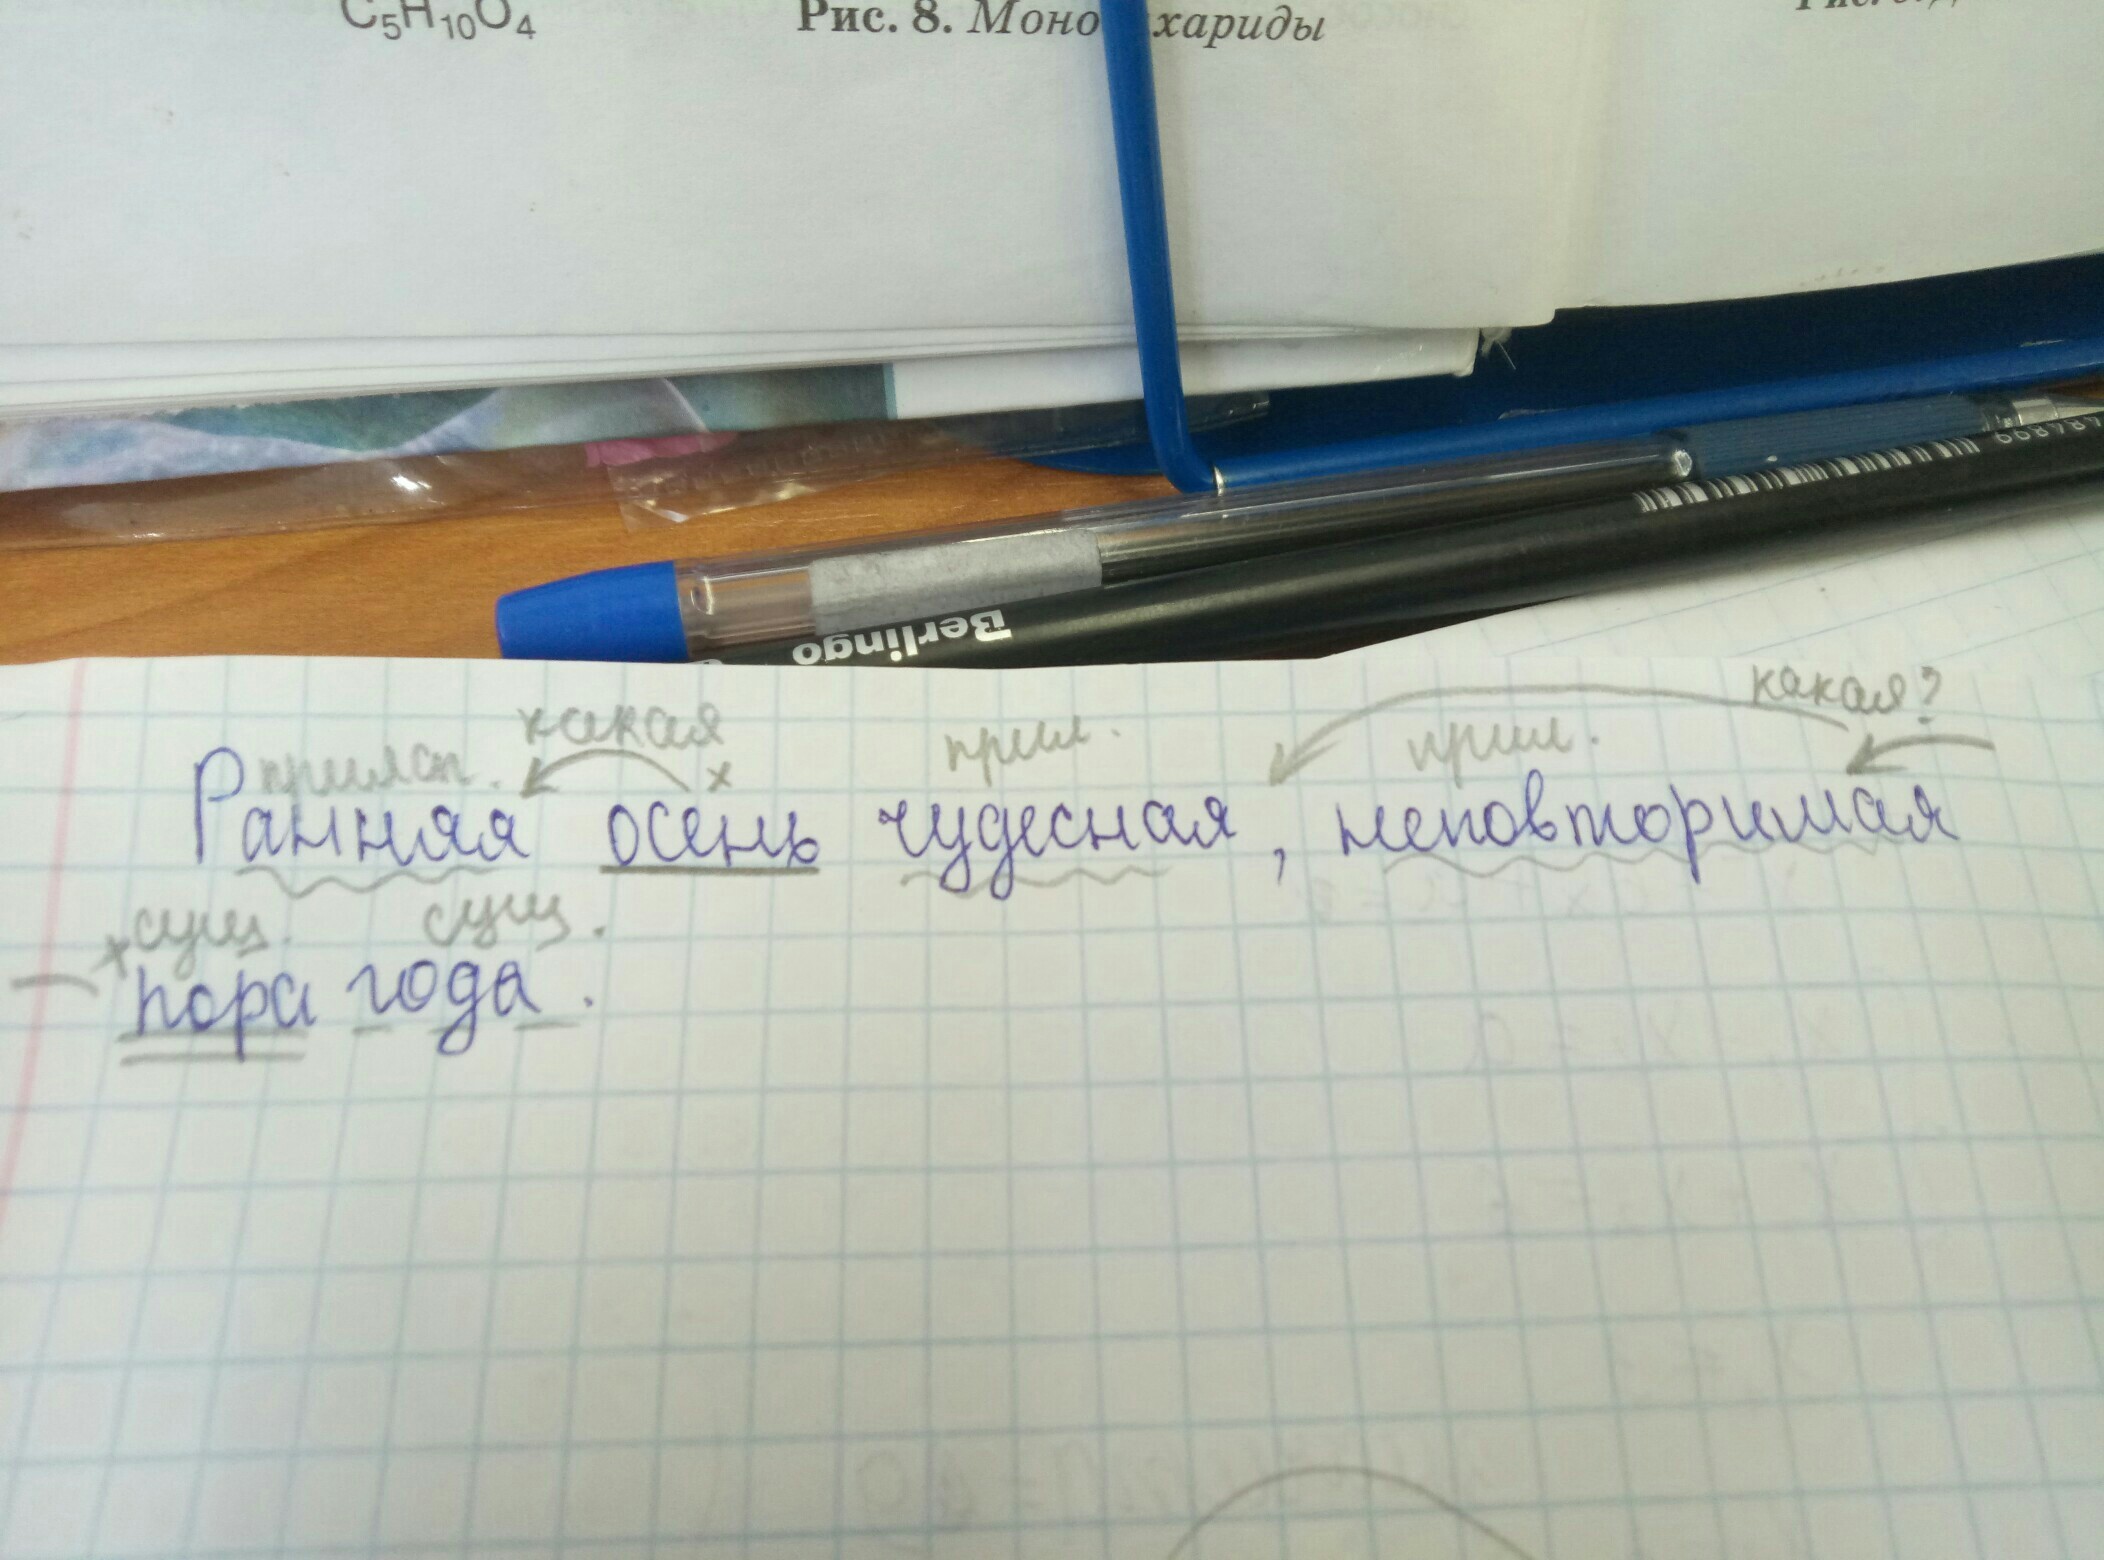 C5H10O4 Рис. 8. Моно хариды
Berlingo
какая какая?
прил. прил.
Ранняя осень чудесная, неповторимая
сущ. сущ.
пора года.